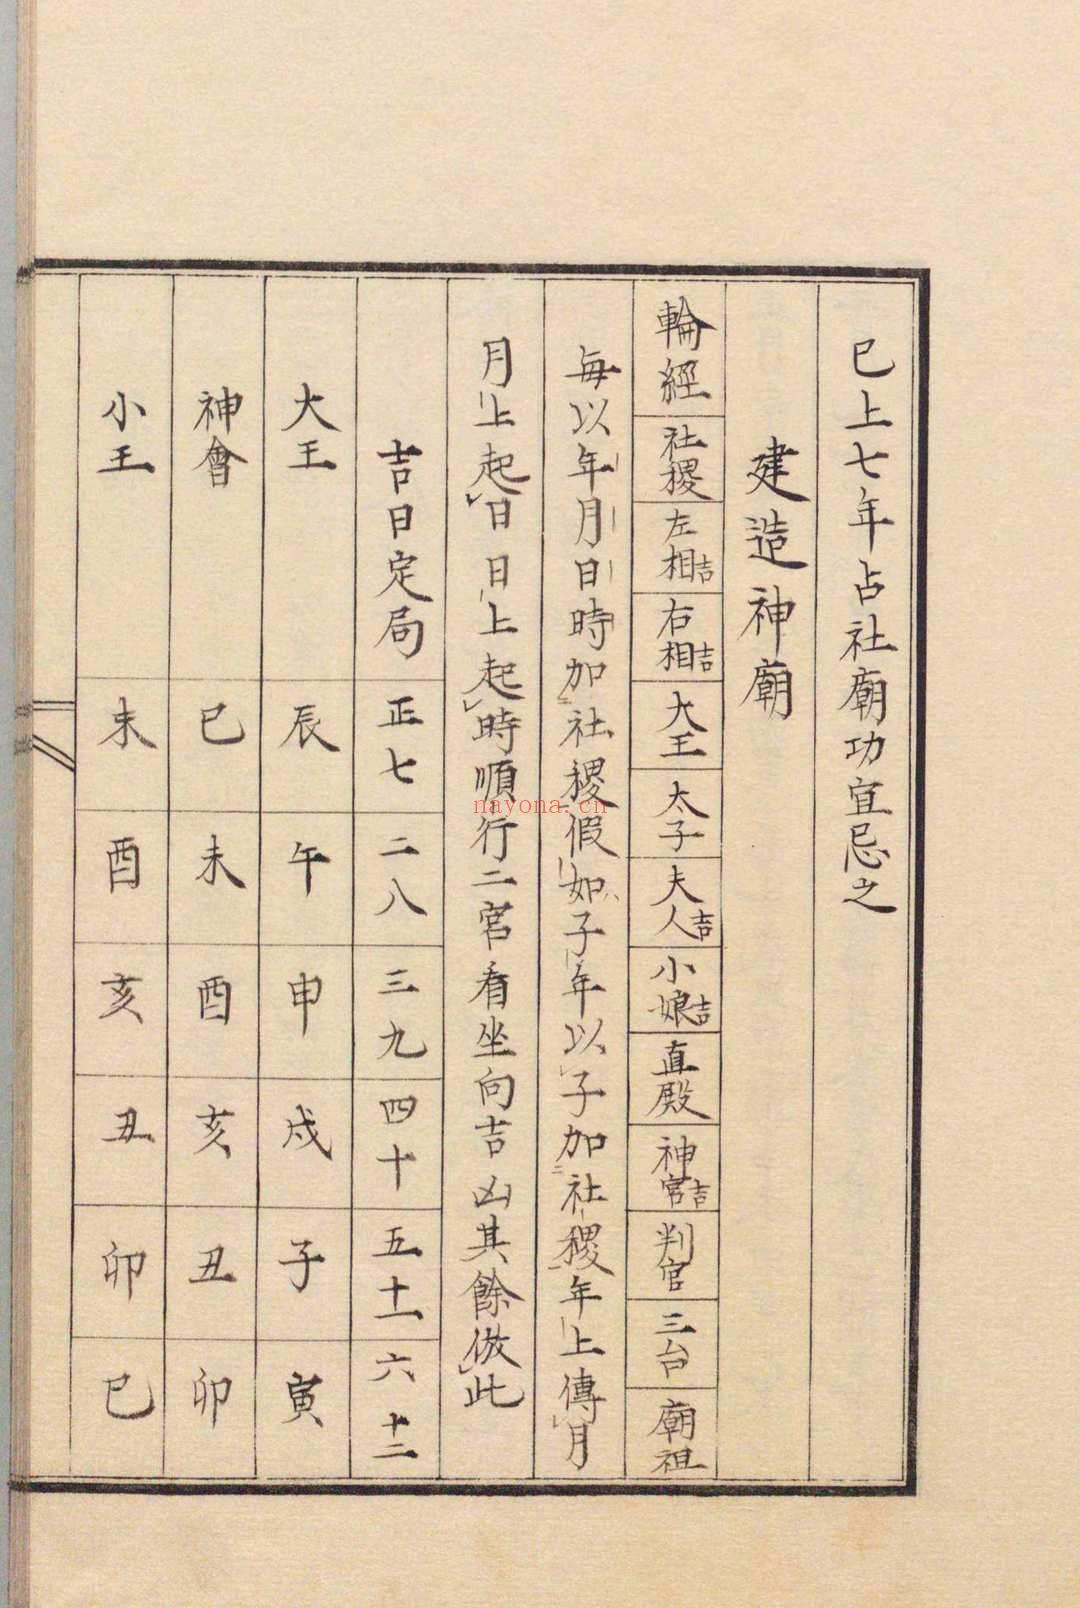 已上七年占社廟功宜忌之
建造神廟
輪經 社稷 左相吉 右相吉 大王 太子 夫人吉 小娘吉 直殿 神官吉 判官 三台 廟祖
每以年月日時加社稷假如子年以子加社稷年上傳月
月上起日日上起時順行二宮看坐向吉凶其餘倣此
吉日定局 正七 二八 三九 四十 五十一 六十二
大王 辰 午 申 戌 子 寅
神會 巳 未 酉 亥 丑 卯
小王 未 酉 亥 丑 卯 巳
nayona.cn